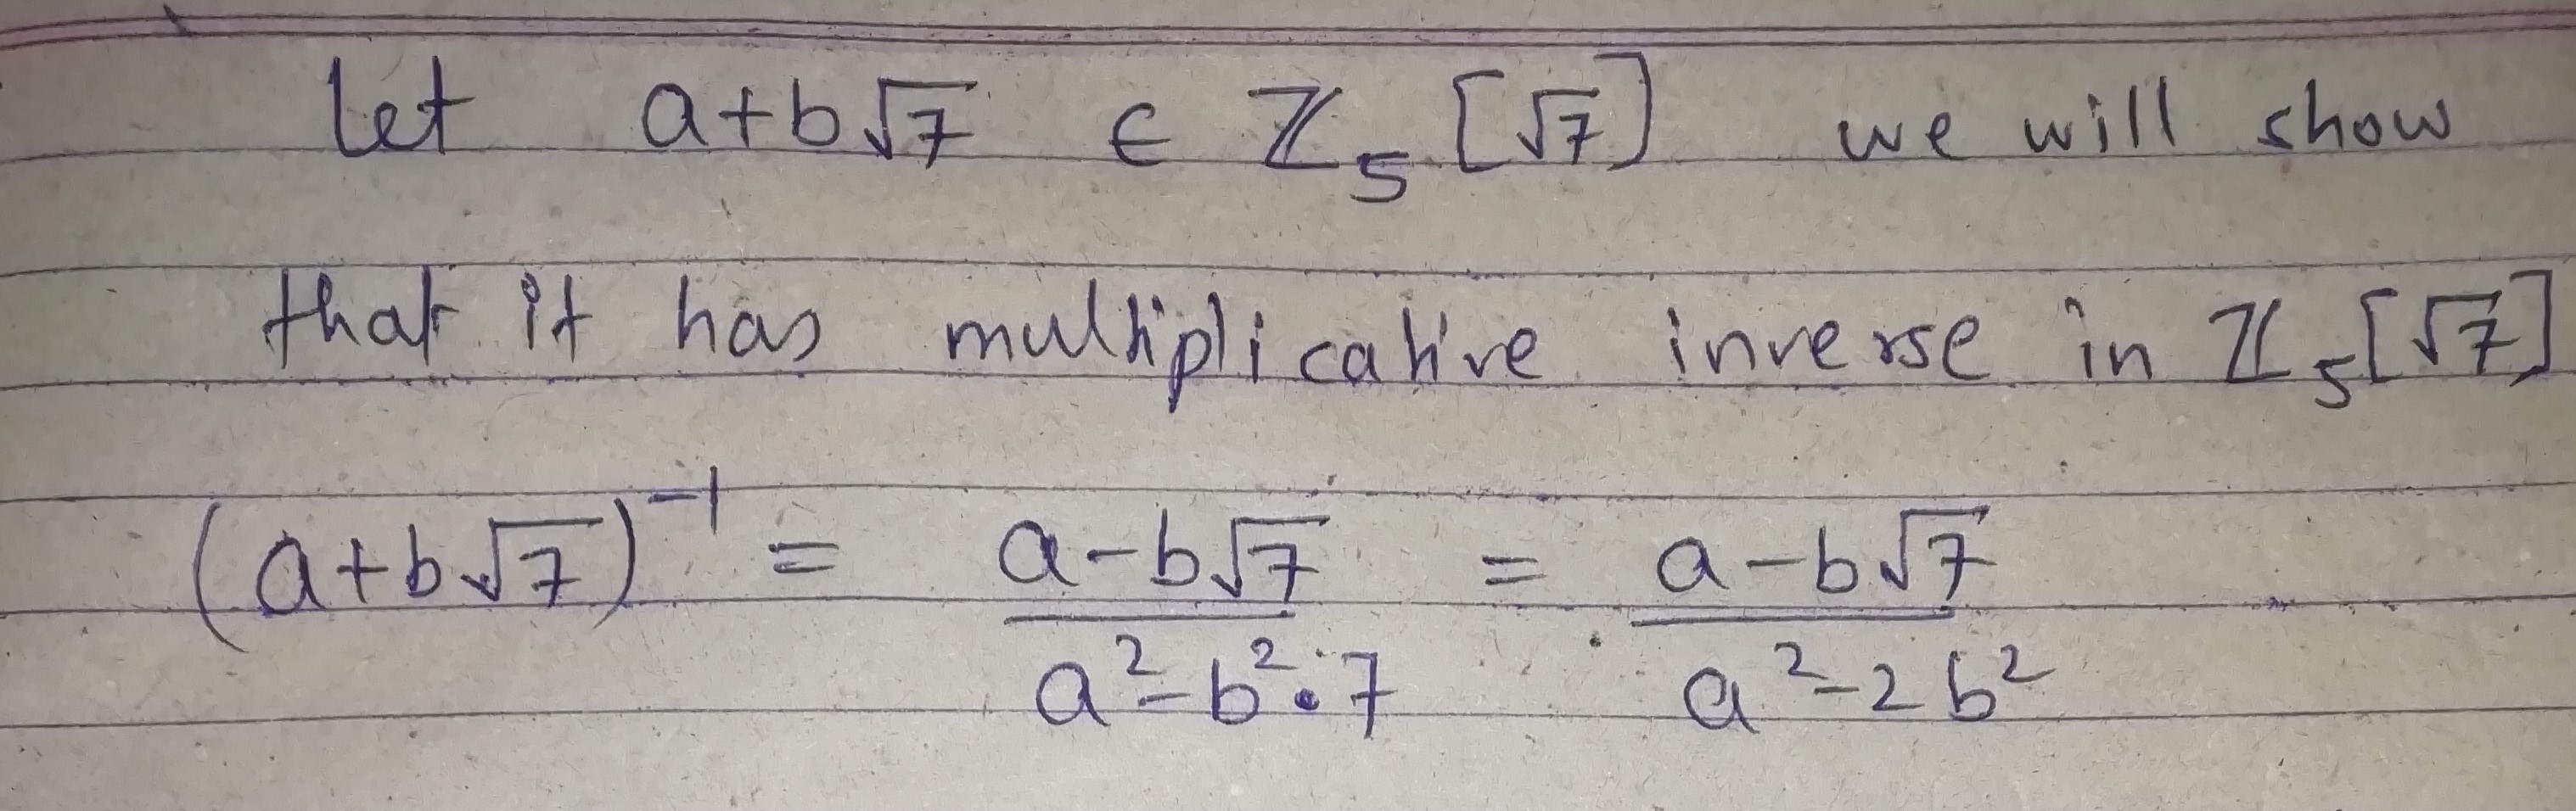 Let a+b√7 ∈ ℤ₅[√7] we will show
that it has multiplicative inverse in ℤ₅[√7]
(a+b√7)⁻¹ = (a-b√7)/(a²-b²·7) = (a-b√7)/(a²-2b²)